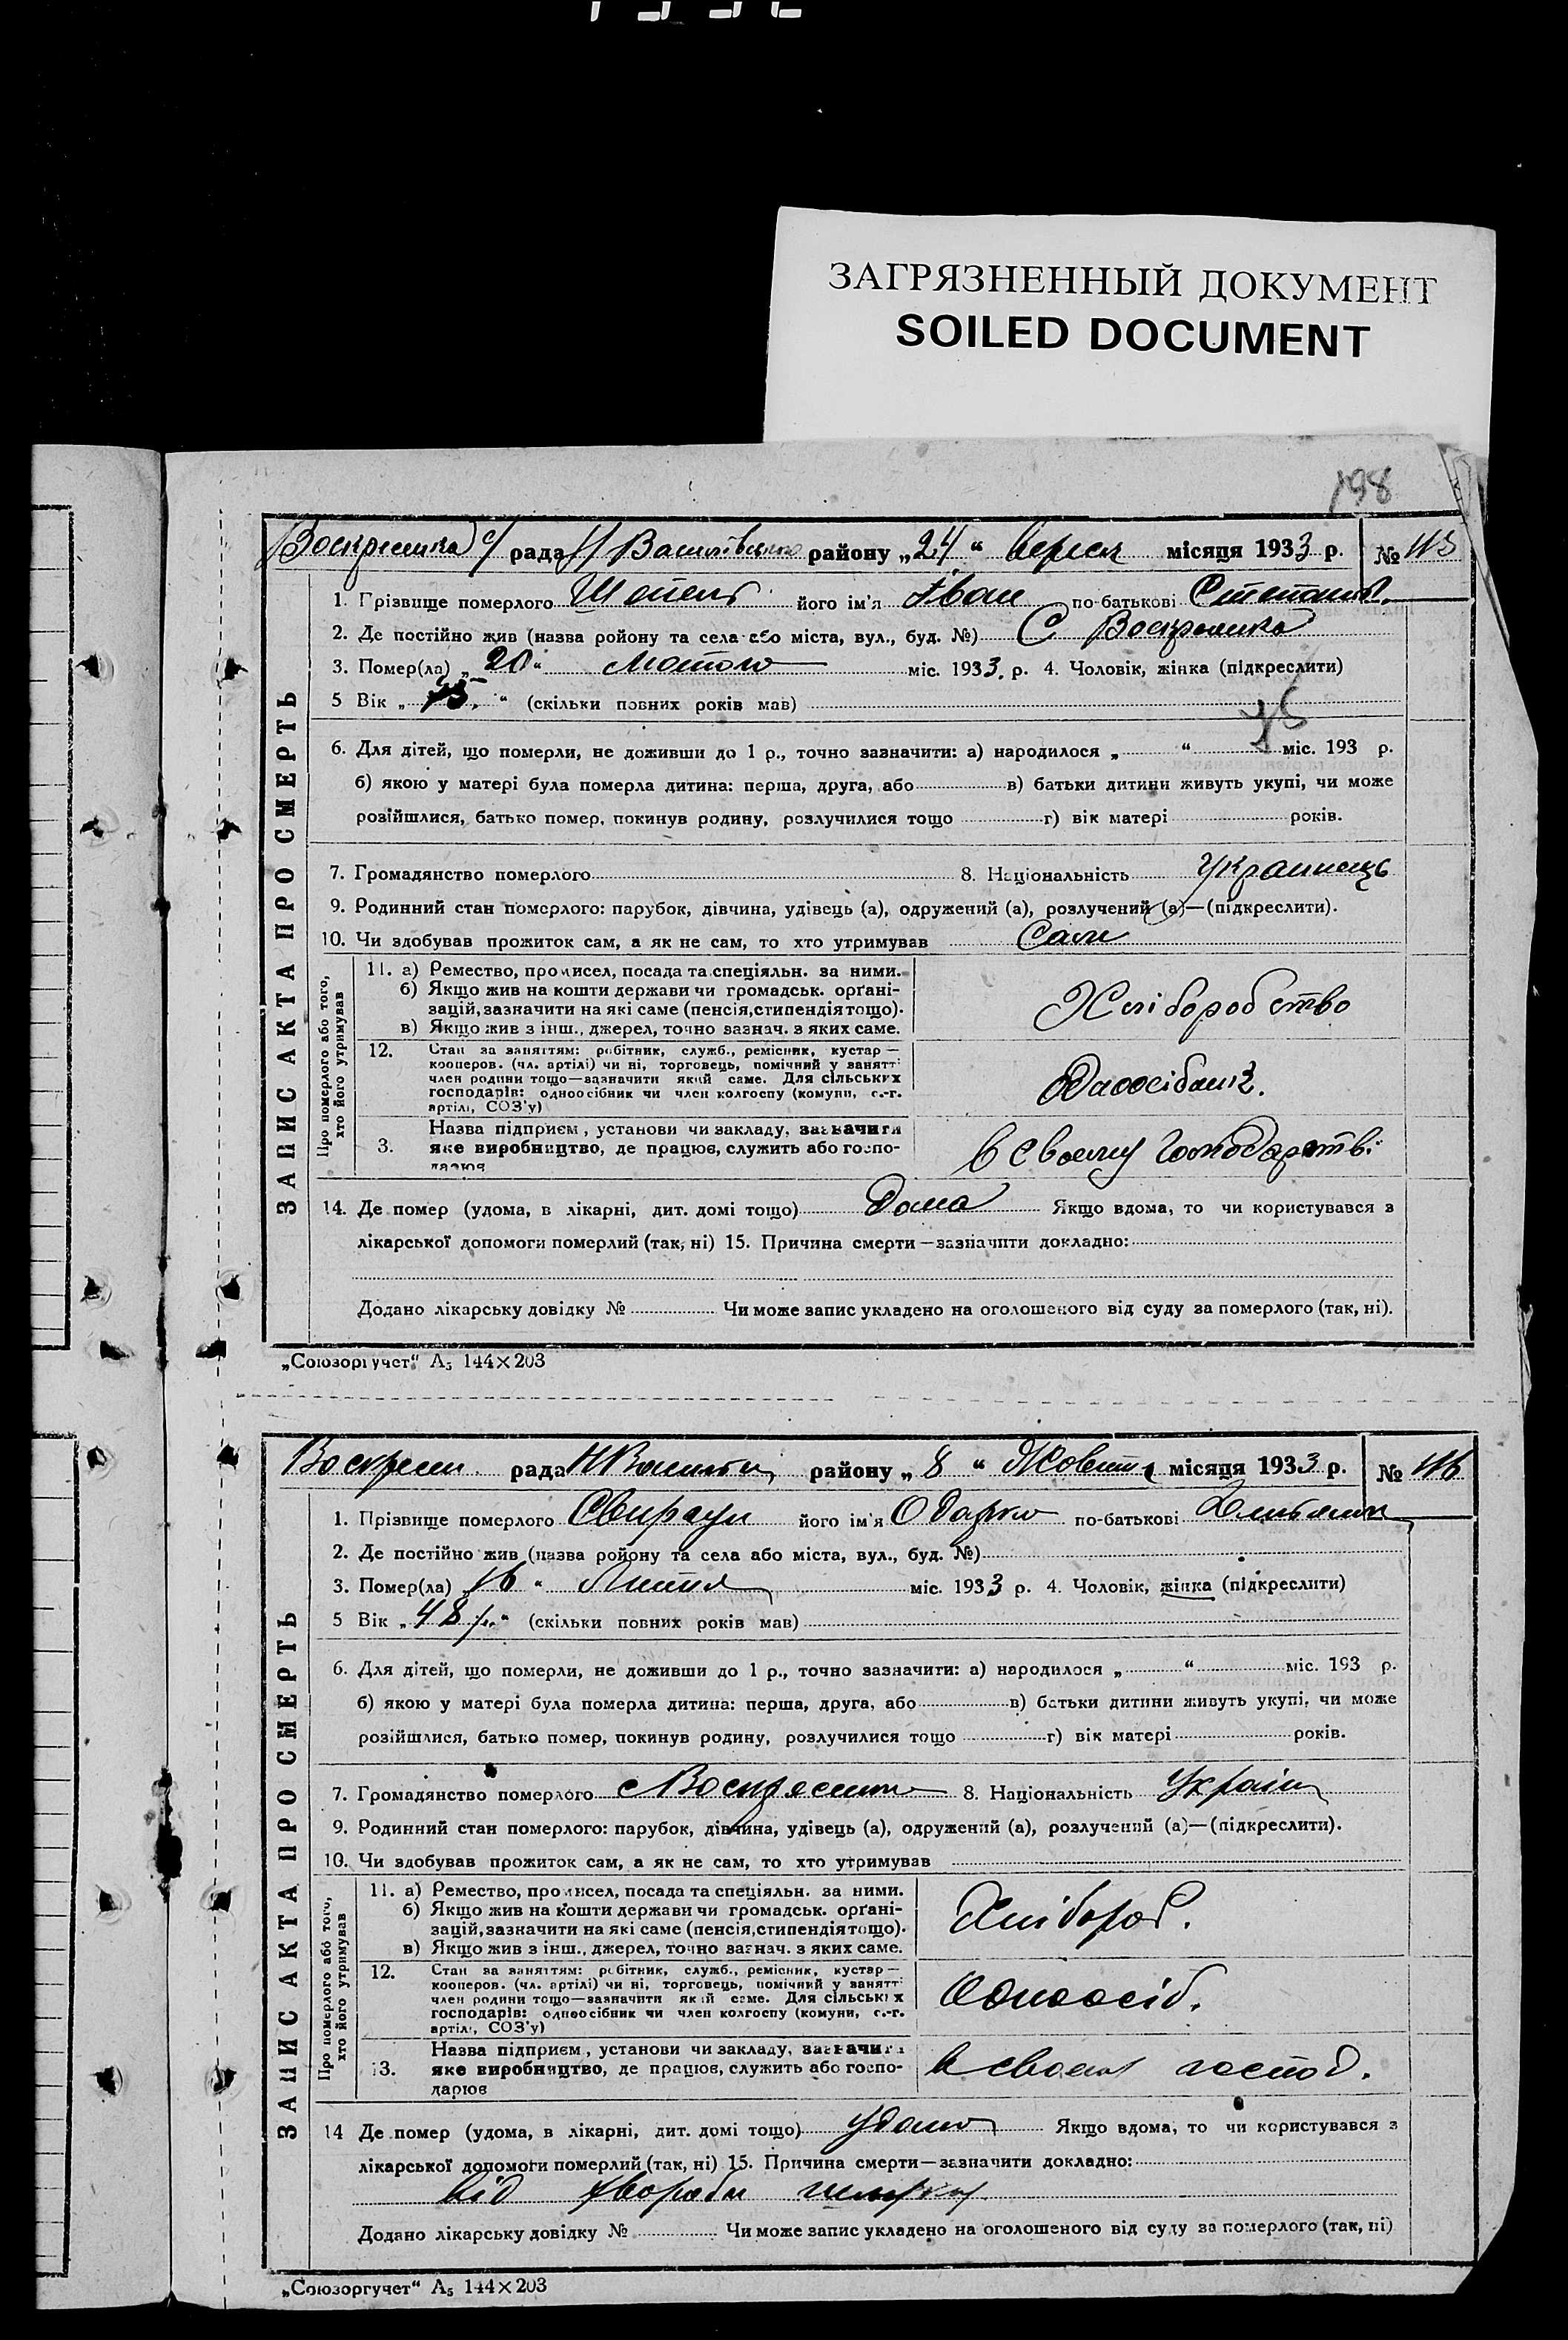 ЗАГРЯЗНЕННЫЙ ДОКУМЕНТ
SOILED DOCUMENT
198
ЗАПИС АКТА ПРО СМЕРТЬ
рада району „24“ місяця 1933 р. №
1. Прізвище померлого його ім'я Іван по-батькові Степанов.
2. Де постійно жив (назва ройону та села або міста, вул., буд. №) С
3. Помер(ла) „20“ міс. 1933. р. 4. Чоловік, жінка (підкреслити)
5 Вік „75.“ (скільки повних років мав)
75
6. Для дітей, що померли, не доживши до 1 р., точно зазначити: а) народилося „ “ міс. 193 р.
б) якою у матері була померла дитина: перша, друга, або в) батьки дитини живуть укупі, чи може
розійшлися, батько помер, покинув родину, розлучилися тощо г) вік матері років.
7. Громадянство померлого 8. Національність Украинець
9. Родинний стан померлого: парубок, дівчина, удівець (а), одружений (а), розлучений (а)—(підкреслити).
10. Чи здобував прожиток сам, а як не сам, то хто утримував Сам
Про померлого або того, хто його утримував
11. а) Ремество, промисел, посада та спеціяльн. за ними.
б) Якщо жив на кошти держави чи громадськ. орґані-
зацій, зазначити на які саме (пенсія, стипендія тощо).
в) Якщо жив з інш., джерел, точно зазнач. з яких саме.
Хліборобство
12. Стан за заняттям: робітник, служб., ремісник, кустар—
кооперов. (чл. артілі) чи ні, торговець, помічний у занятті
член родини тощо—зазначити який саме. Для сільських
господарів: одноосібник чи член колгоспу (комуни, с.-г.
артілі, СОЗ'у)
3. Назва підприєм., установи чи закладу, зазначити
яке виробництво, де працює, служить або госпо-
дарює
в своему господарстві
14. Де помер (удома, в лікарні, дит. домі тощо) Дома Якщо вдома, то чи користувався з
лікарської допомоги померлий (так, ні) 15. Причина смерти—зазначити докладно:
Додано лікарську довідку № Чи може запис укладено на оголошеного від суду за померлого (так, ні).
„Союзоргучет“ А₅ 144×203
ЗАПИС АКТА ПРО СМЕРТЬ
рада району „8“ місяця 1933 р. №
1. Прізвище померлого його ім'я Одарка по-батькові
2. Де постійно жив (назва ройону та села або міста, вул., буд. №)
3. Помер(ла) „16“ міс. 1933 р. 4. Чоловік, жінка (підкреслити)
5 Вік „48 р.“ (скільки повних років мав)
6. Для дітей, що померли, не доживши до 1 р., точно зазначити: а) народилося „ “ міс. 193 р.
б) якою у матері була померла дитина: перша, друга, або в) батьки дитини живуть укупі, чи може
розійшлися, батько помер, покинув родину, розлучилися тощо г) вік матері років.
7. Громадянство померлого 8. Національність
9. Родинний стан померлого: парубок, дівчина, удівець (а), одружений (а), розлучений (а)—(підкреслити).
10. Чи здобував прожиток сам, а як не сам, то хто утримував
Про померлого або того, хто його утримував
11. а) Ремество, промисел, посада та спеціяльн. за ними.
б) Якщо жив на кошти держави чи громадськ. орґані-
зацій, зазначити на які саме (пенсія, стипендія тощо).
в) Якщо жив з інш., джерел, точно зазнач. з яких саме.
Хлібороб.
12. Стан за заняттям: робітник, служб., ремісник, кустар—
кооперов. (чл. артілі) чи ні, торговець, помічний у занятті
член родини тощо—зазначити який саме. Для сільських
господарів: одноосібник чи член колгоспу (комуни, с.-г.
артілі, СОЗ'у)
Одноосіб.
13. Назва підприєм., установи чи закладу, зазначити
яке виробництво, де працює, служить або госпо-
дарює
в своем господ.
14 Де помер (удома, в лікарні, дит. домі тощо) Удома Якщо вдома, то чи користувався з
лікарської допомоги померлий (так, ні) 15. Причина смерти—зазначити докладно:
Від хвороби
Додано лікарську довідку № Чи може запис укладено на оголошеного від суду за померлого (так, ні)
„Союзоргучет“ А₅ 144×203